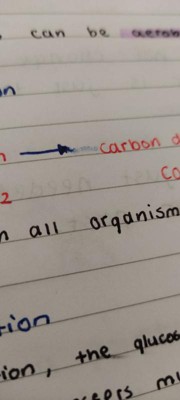 can be aerob
on
n → carbon d
co
2
n all organism
tion
tion, the glucos